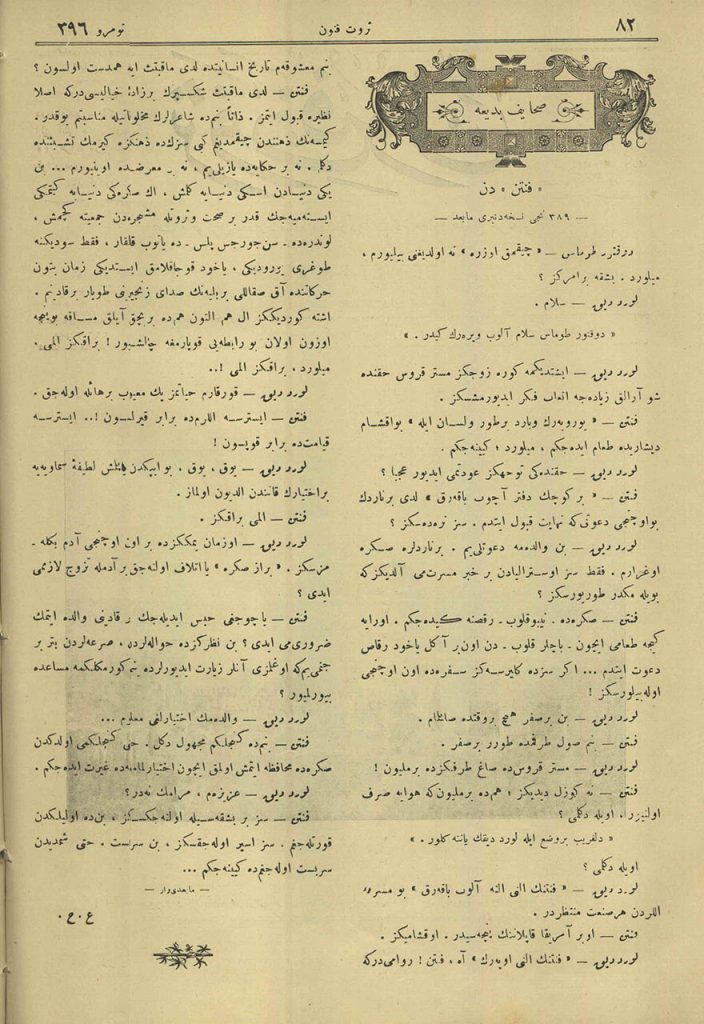 ٨٢
ثروت فنون
نومرو ٣٩٦
صحایف بدیعه
« فنتن » دن
— ٣٨٩ نجی نسخه‌دنبری مابعد —
دوقتور طوماس — « چیقمق اوزره » نه اولدیغنی بیلیورم ،
میلورد . بشقه برامرکز ؟
لورد دیق — سلام .
« دوقتور طوماس سلام آلوب ویره‌رك کیدر . »
لورد دیق — ایشتدیکمه کوره زوجکز مستر قروس حقنده
شو آرالق زیاده‌جه اتعاب فکر ایدیورمشسکز .
فنتن — « یوروبه‌رك وبارد برطور ولسان ایله » بواقشام
دیشاریده طعام ایده‌جکم ، میلورد ؛ کیینه‌جکم .
لورد دیق — حقنده‌کی توجهکز عودتمی ایدیور عجبا ؟
فنتن — « بر کوچك دفتر آچوب باقه‌رق » لدی برناردك
بواوچنجی دعوتی‌که نهایت قبول ایتدم . سز نره‌ده‌سکز ؟
لورد دیق — بن والده‌مه دعوتلی‌یم . برناردلره صکره
اوغرارم . فقط سز اوسترالیادن بر خبر مسرت‌می آلدیکزکه
بویله مکدر طوریورسکز ؟
فنتن — صکره‌ده . نیبوقلوب ـ رقصنه کیده‌جکم . اورایه
کیجه طعامی ایچون ـ باچلر قلوب ـ دن اون‌بر آکل یاخود رقاص
دعوت ایتدم ... اکر سزده کلیرسه‌کز سفره‌ده اون اوچنجی
اوله‌بیلورسکز !
لورد دیق — بن برصفر هیچ بروقتده صایلمام .
فنتن — بنم صول طرفمده طورر برصفر .
لورد دیق — مستر قروس‌ده صاغ طرفکزده برملیون !
فنتن — نه کوزل دیدیکز ؛ هم‌ده برملیون‌که هوایه صرف
اولنیور، اویله دکلی ؟
« دلفریب بروضع ایله لورد دیقك یاننه کلور . »
اویله دکلی ؟
لورد دیق — « فنتنك النی النه آلوب باقه‌رق » بو مسره
اللردن هرصنعت منتظردر .
فنتن — اوبر آمریقا قاپلاننك پنجه‌سیدر . اوقشامیکز .
لورد دیق — « فنتنك النی اوپه‌رك » آه ، فنتن ! روامی‌درکه
بنم معشوقه‌م تاریخ انسانیتده لدی ماقبث ایله همدست اولسون ؟
فنتن — لدی ماقبث شکسپیرك برزادهٔ خیالیسی‌درکه اصلا
نظیره قبول ایتمز . ذاتاً بنم‌ده شاعرلرك مخلوقاتیله مناسبتم یوقدر .
کیمسه‌نك ذهنندن چیقمدیغم کبی سزك‌ده ذهنکزه کیرمك تشبثنده
دکلم . نه بر حکایه‌ده یازیلی‌یم ، نه بر معرضده اوینیورم ... بن
یکی دنیادن اسکی دنیایه کلمش ، اك صکره‌کی دنیایه کیتمکی
ایسته‌میه‌جك قدر بر صحت وثروتله مشجره‌دن جمعیته کچمش ،
لوندره‌ده ـ سن‌جورجس پلس ـ ده یاتوب قالقار ، فقط سودیکنه
طوغری یورودیکی ، یاخود قوجاقلامق ایستدیکی زمان بتون
حرکاتنده آق صقاللی برپلیدنك صدای زنجیرینی طویار برقادینم .
اشته کوردیککز ال هم التون هم‌ده بربچق آیلق مسافه بوینجه
اوزون اولان بو رابطه‌یی قوپارمغه چالیشیور ! براقکز المی .
میلورد ، براقکز المی !..
لورد دیق — قورقارم حیاتمز پك معیوب برهائله اوله‌جق .
فنتن — ایسترسه اللرم‌ده برابر قیرلسون !.. ایسترسه
قیامت‌ده برابر قوپسون !
لورد دیق — یوق ، یوق . بو ایپکدن ایشلنمش لطیفهٔ سماویه‌یه
براختیارك قانندن الدیون اولماز .
فنتن — المی براقکز .
لورد دیق — اوزمان یمککزده بر اون اوچنجی آدم بکله ـ
مزسکز . « براز صکره » یا اتلاف اوله‌جق برآدمله تزوج لازممی
ایدی ؟
فنتن — یا چوجغنی حبس ایدیله‌جك بر قادینی والده ایتمك
ضروری‌می ایدی ؟ بن نظرکزده حواله‌لردن ، صرعه‌لردن بتر بر
جنمی‌یم‌که اوغلمزی آنلر زیارت ایدیورلرده بنم کورمکلکمه مساعده
بیورلمیور ؟
لورد دیق — والده‌مك اختیارلغی معلوم ...
فنتن — بنم‌ده کنجلکم مجهول دکل . حتی کنجلکمی اولدکدن
صکره‌ده محافظه ایتمش اولمق ایچون اختیارلمامه‌ده غیرت ایده‌جکم .
لورد دیق — عزیزه‌م ، مرامك نه‌در ؟
فنتن — سز بر بشقه‌سیله اولنه‌جکسکز ، بن‌ده اولیلکدن
قورتله‌جغم . سز اسیر اوله‌جقسکز ، بن سربست . حتی شمدیدن
سربست اوله‌جغم‌ده کیینه‌جکم ...
— مابعدی وار —
ع . ح .